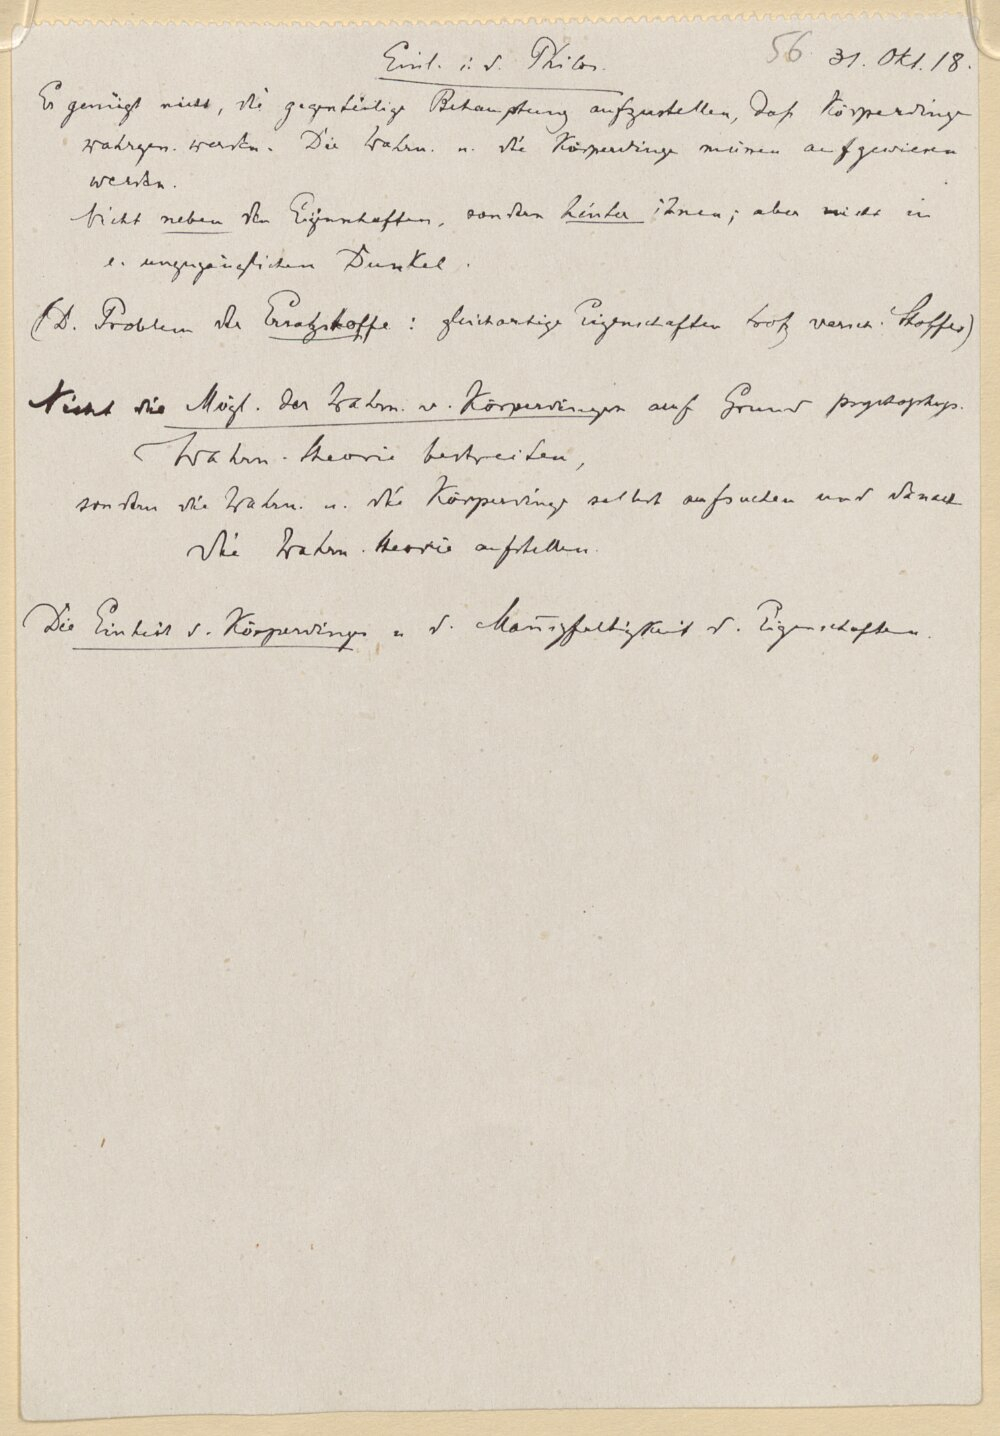 Einl. i. d. Philos. 56 31. Okt. 18.
Es genügt nicht, die gegenteilige Behauptung aufzustellen, daß Körperdinge
wahrgen. werden. Die Wahrn. u. die Körperdinge müssen aufgewiesen
werden.
Nicht neben den Eigenschaften, sondern hinter ihnen; aber nicht in
e. unzugänglichen Dunkel.
(D. Problem der Ersatzstoffe: gleichartige Eigenschaften trotz versch. Stoffes)
Nicht die Mögl. der Wahrn. v. Körperdingen auf Grund psychophys.
Wahrn.-theorie bestreiten,
sondern die Wahrn. u. die Körperdinge selbst aufsuchen und danach
die Wahrn.theorie aufstellen.
Die Einheit d. Körperdinge u. d. Mannigfaltigkeit d. Eigenschaften.